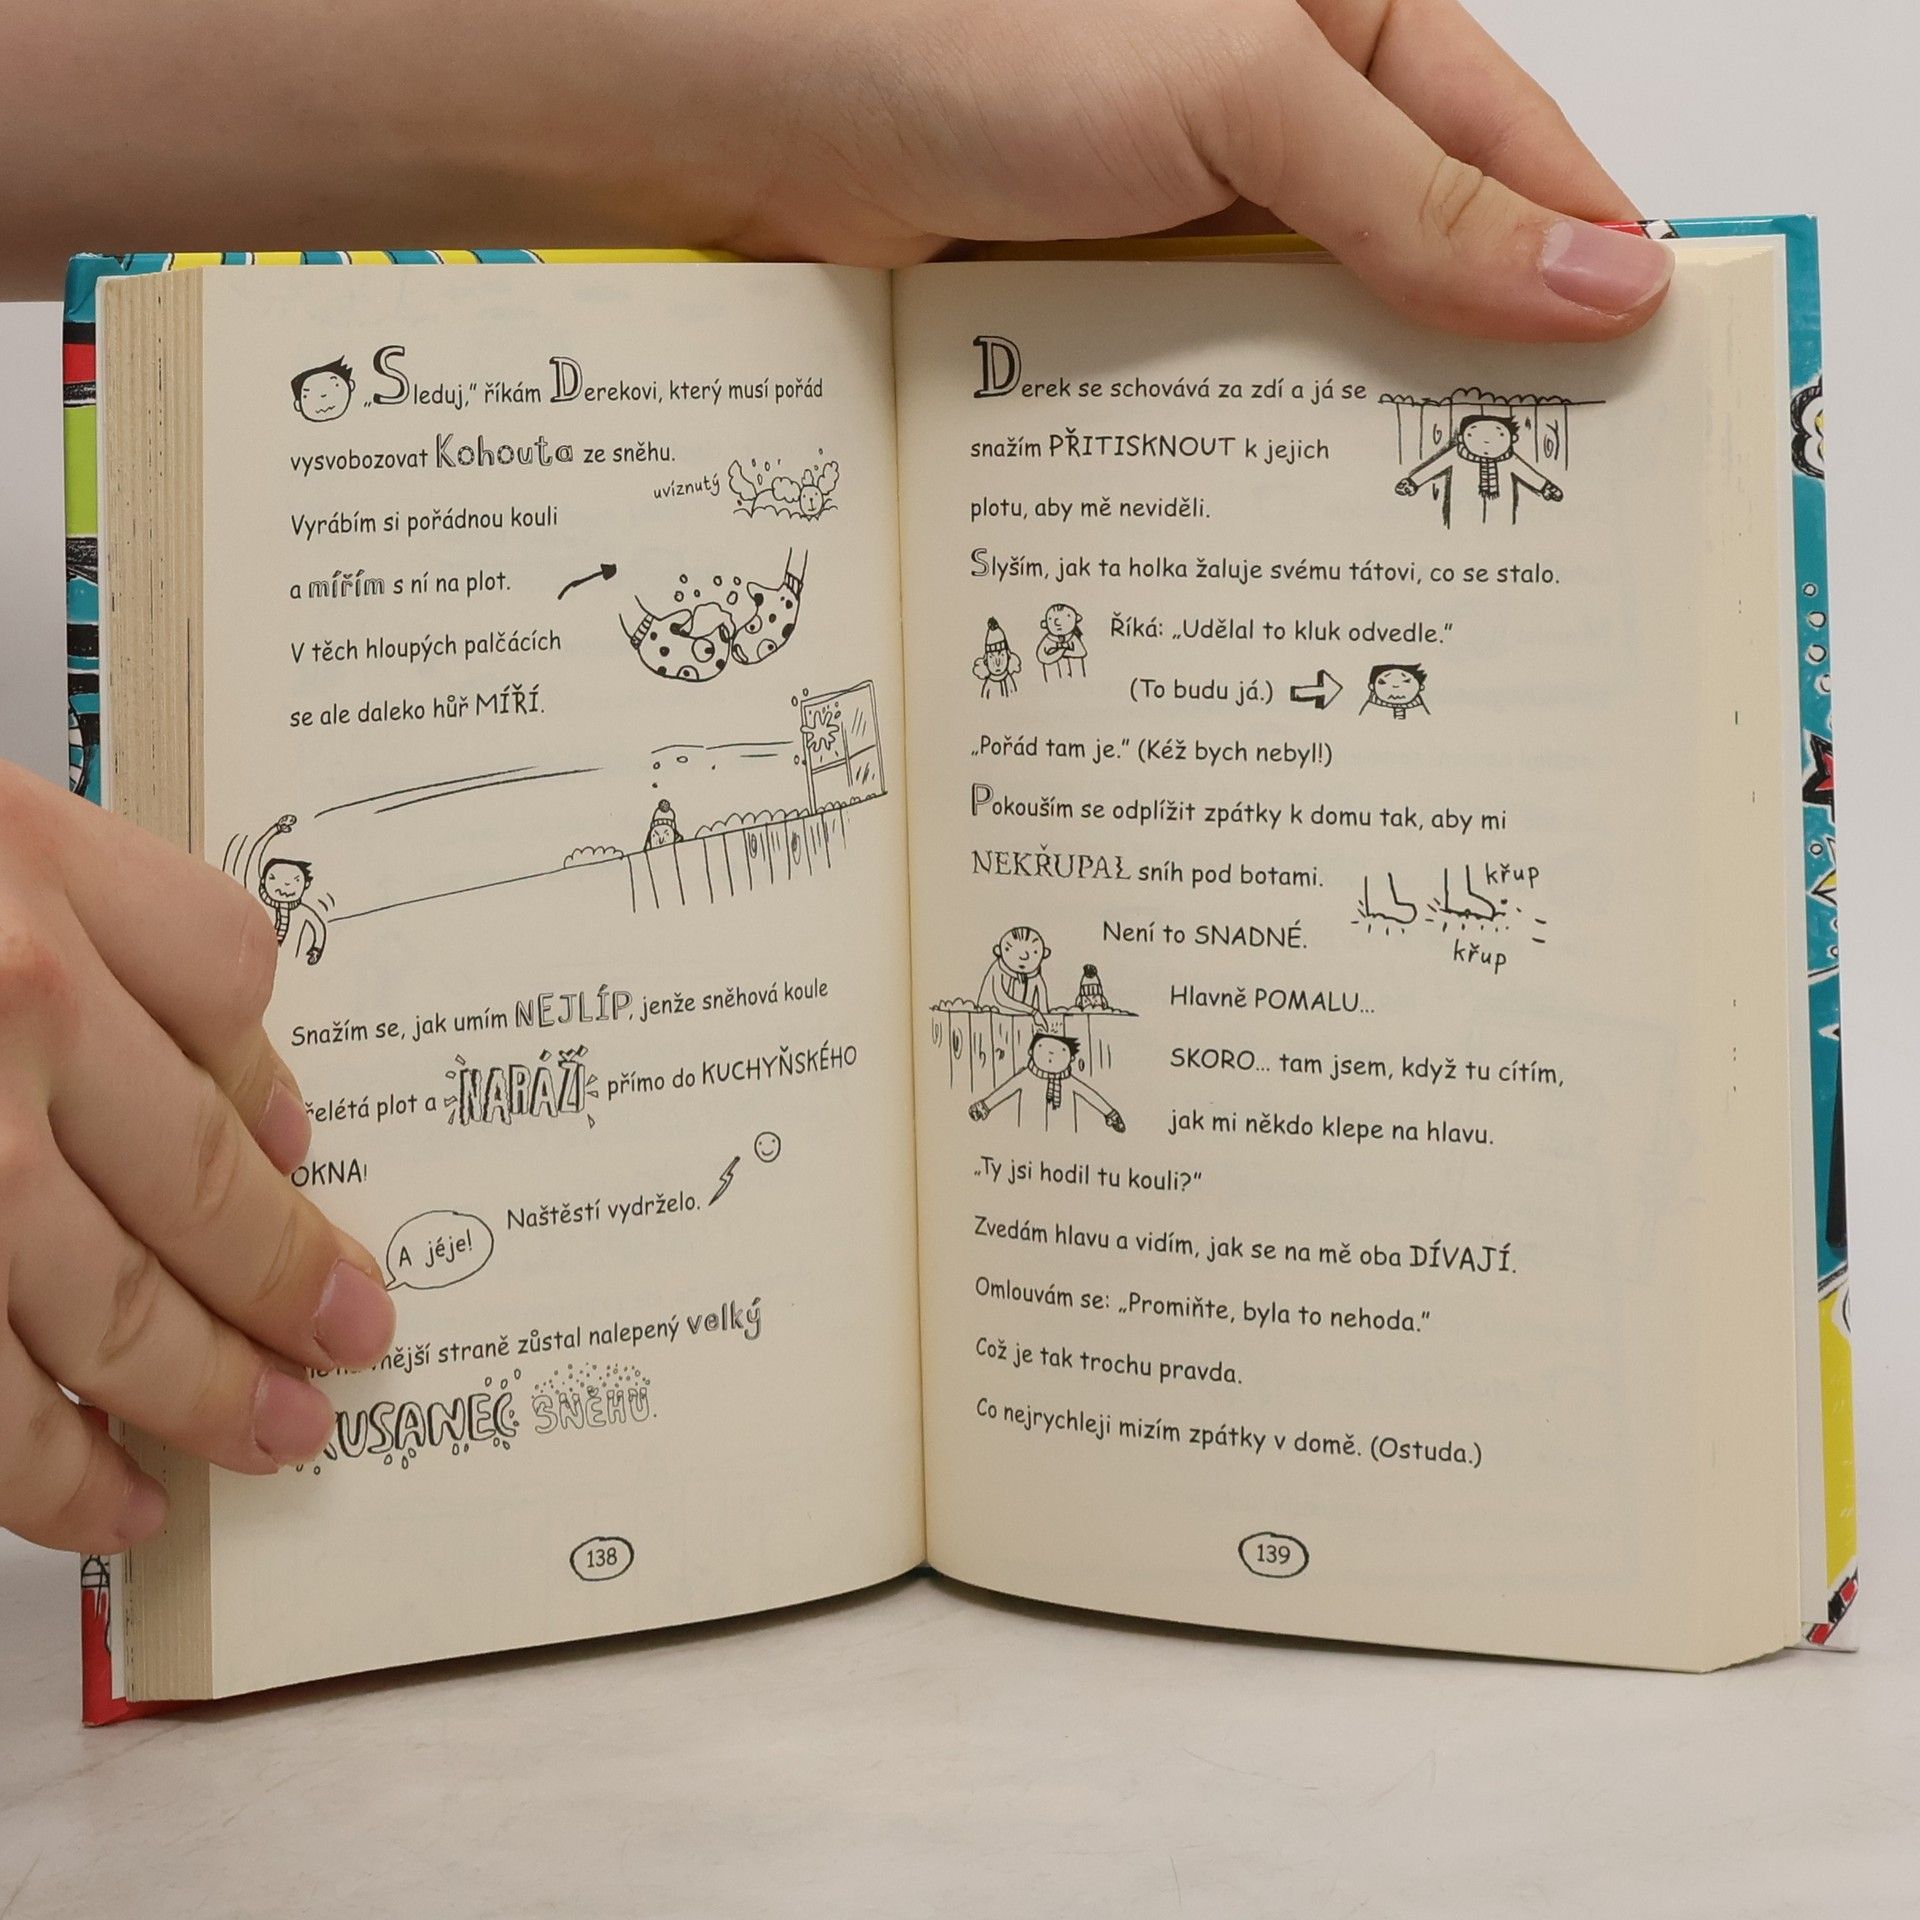 „Sleduj,“ říkám Derekovi, který musí pořád
vysvobozovat Kohouta ze sněhu.
uvíznutý
Vyrábím si pořádnou kouli
a mířím s ní na plot.
V těch hloupých palčácích
se ale daleko hůř MÍŘÍ.
Snažím se, jak umím NEJLÍP, jenže sněhová koule
plot a NARÁŽÍ přímo do KUCHYŇSKÉHO
OKNA!
Naštěstí vydrželo.
A jéje!
straně zůstal nalepený velký
SNĚHU.
138
Derek se schovává za zdí a já se
snažím PŘITISKNOUT k jejich
plotu, aby mě neviděli.
Slyším, jak ta holka žaluje svému tátovi, co se stalo.
Říká: „Udělal to kluk odvedle.“
(To budu já.)
„Pořád tam je.“ (Kéž bych nebyl!)
Pokouším se odplížit zpátky k domu tak, aby mi
NEKŘUPAL sníh pod botami.
křup
křup
Není to SNADNÉ.
Hlavně POMALU...
SKORO... tam jsem, když tu cítím,
jak mi někdo klepe na hlavu.
„Ty jsi hodil tu kouli?“
Zvedám hlavu a vidím, jak se na mě oba DÍVAJÍ.
Omlouvám se: „Promiňte, byla to nehoda.“
Což je tak trochu pravda.
Co nejrychleji mizím zpátky v domě. (Ostuda.)
139